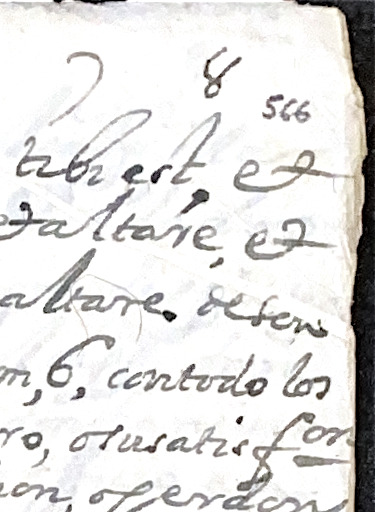 8
566
tibi est, et
et altare, et
altare. deson
m, 6, contodo los
ro, osusatisf on
on, operdon